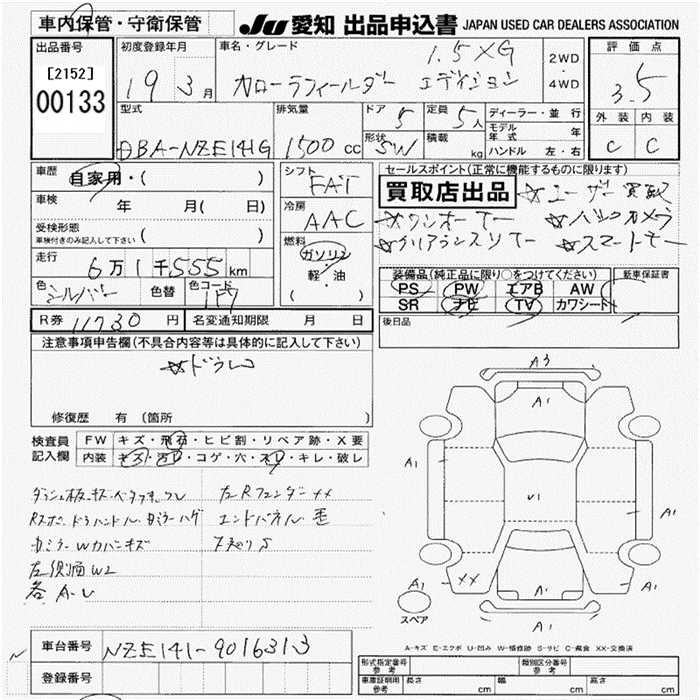 車内保管・守衛保管 JU 愛知 出品申込書 JAPAN USED CAR DEALERS ASSOCIATION
出品番号 初度登録年月 車名・グレード 評価点
[2152]
00133
19 3月 カローラフィールダー 1.5XG エディション 2WD・4WD 3.5
型式 排気量 ドア 定員 ディーラー・並行 外装 内装
DBA-NZE141G 1500 cc 5 5人 モデル年式 年式 C C
形状 SW 積載 kg ハンドル 左・右
車歴 自家用・( ) シフト FAT セールスポイント(正常に機能するものに限ります)
車検 年 月( 日) 冷房 AAC 買取店出品 ☆ユーザー買取
☆ワンオーナー ☆バックカメラ
受検形態 車検付きのみ記入して下さい ( ) ☆クリアランスソナー ☆スマートキー
走行 6万1千555km 燃料 ガソリン 軽・油 ( )
装備品(純正品に限り○をつけてください) 新車保証書
色 シルバー 色替 色コード 1F7 PS PW エアB AW
SR ナビ TV カワシート
R券 11730 円 名変通知期限 月 日 後日品
注意事項申告欄(不具合内容等は具体的に記入して下さい)
☆ドラレコ
修復歴 有 (箇所 )
検査員記入欄 FW キズ・飛石・ヒビ割・リペア跡・X要
内装 キズ・汚レ・コゲ・穴・スレ・キレ・破レ
左Rフェンダー XX
エンドパネル
左側面W2
各 A・U
A3
A1
A1
U1
A1
A1
XX
A1
A1
A1
スペア
A-キズ E-エクボ U-凹み W-補修跡 S-サビ C-腐食 XX-交換済
車台番号 NZE141-9016313
登録番号
形式指定番号 参考 類別区分番号 参考
車庫証明用 参考 長さ cm 幅 cm 高さ cm